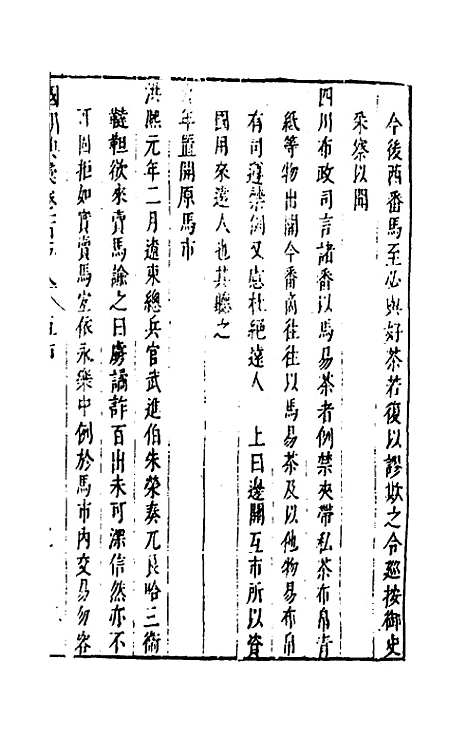 今後西番馬至必與好茶若復以謬欺之令巡按御史
采察以聞
四川布政司言諸番以馬易茶者例禁夾帶私茶布帛青
紙等物出關今番商往往以馬易茶及以他物易布帛
有司遵禁例又慮杜絕遠人 上曰邊關互市所以資
國用來遠人也其聽之
年置開原馬市
洪熙元年二月遼東總兵官武進伯朱榮奏兀良哈三衛
韃靼欲來賣馬諭之曰虜譎詐百出未可深信然亦不
可固拒如實賣馬宜依永樂中例於馬市內交易勿容
國朝典彙卷